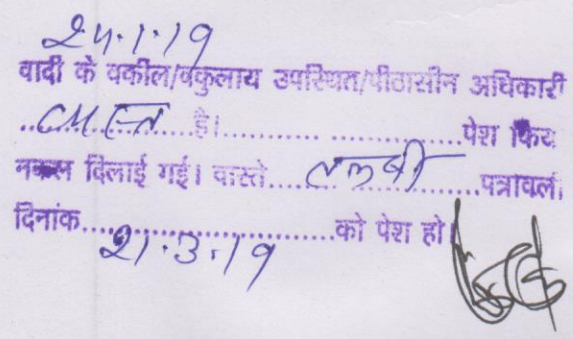 24.1.19
वादी के वकील/वकुलाय उपस्थित/पीठासीन अधिकारी
.................है। ....................पेश किये
नकल दिलाई गई। वास्ते....तलबी....पत्रावली
दिनांक.............................को पेश हो।
21.3.19